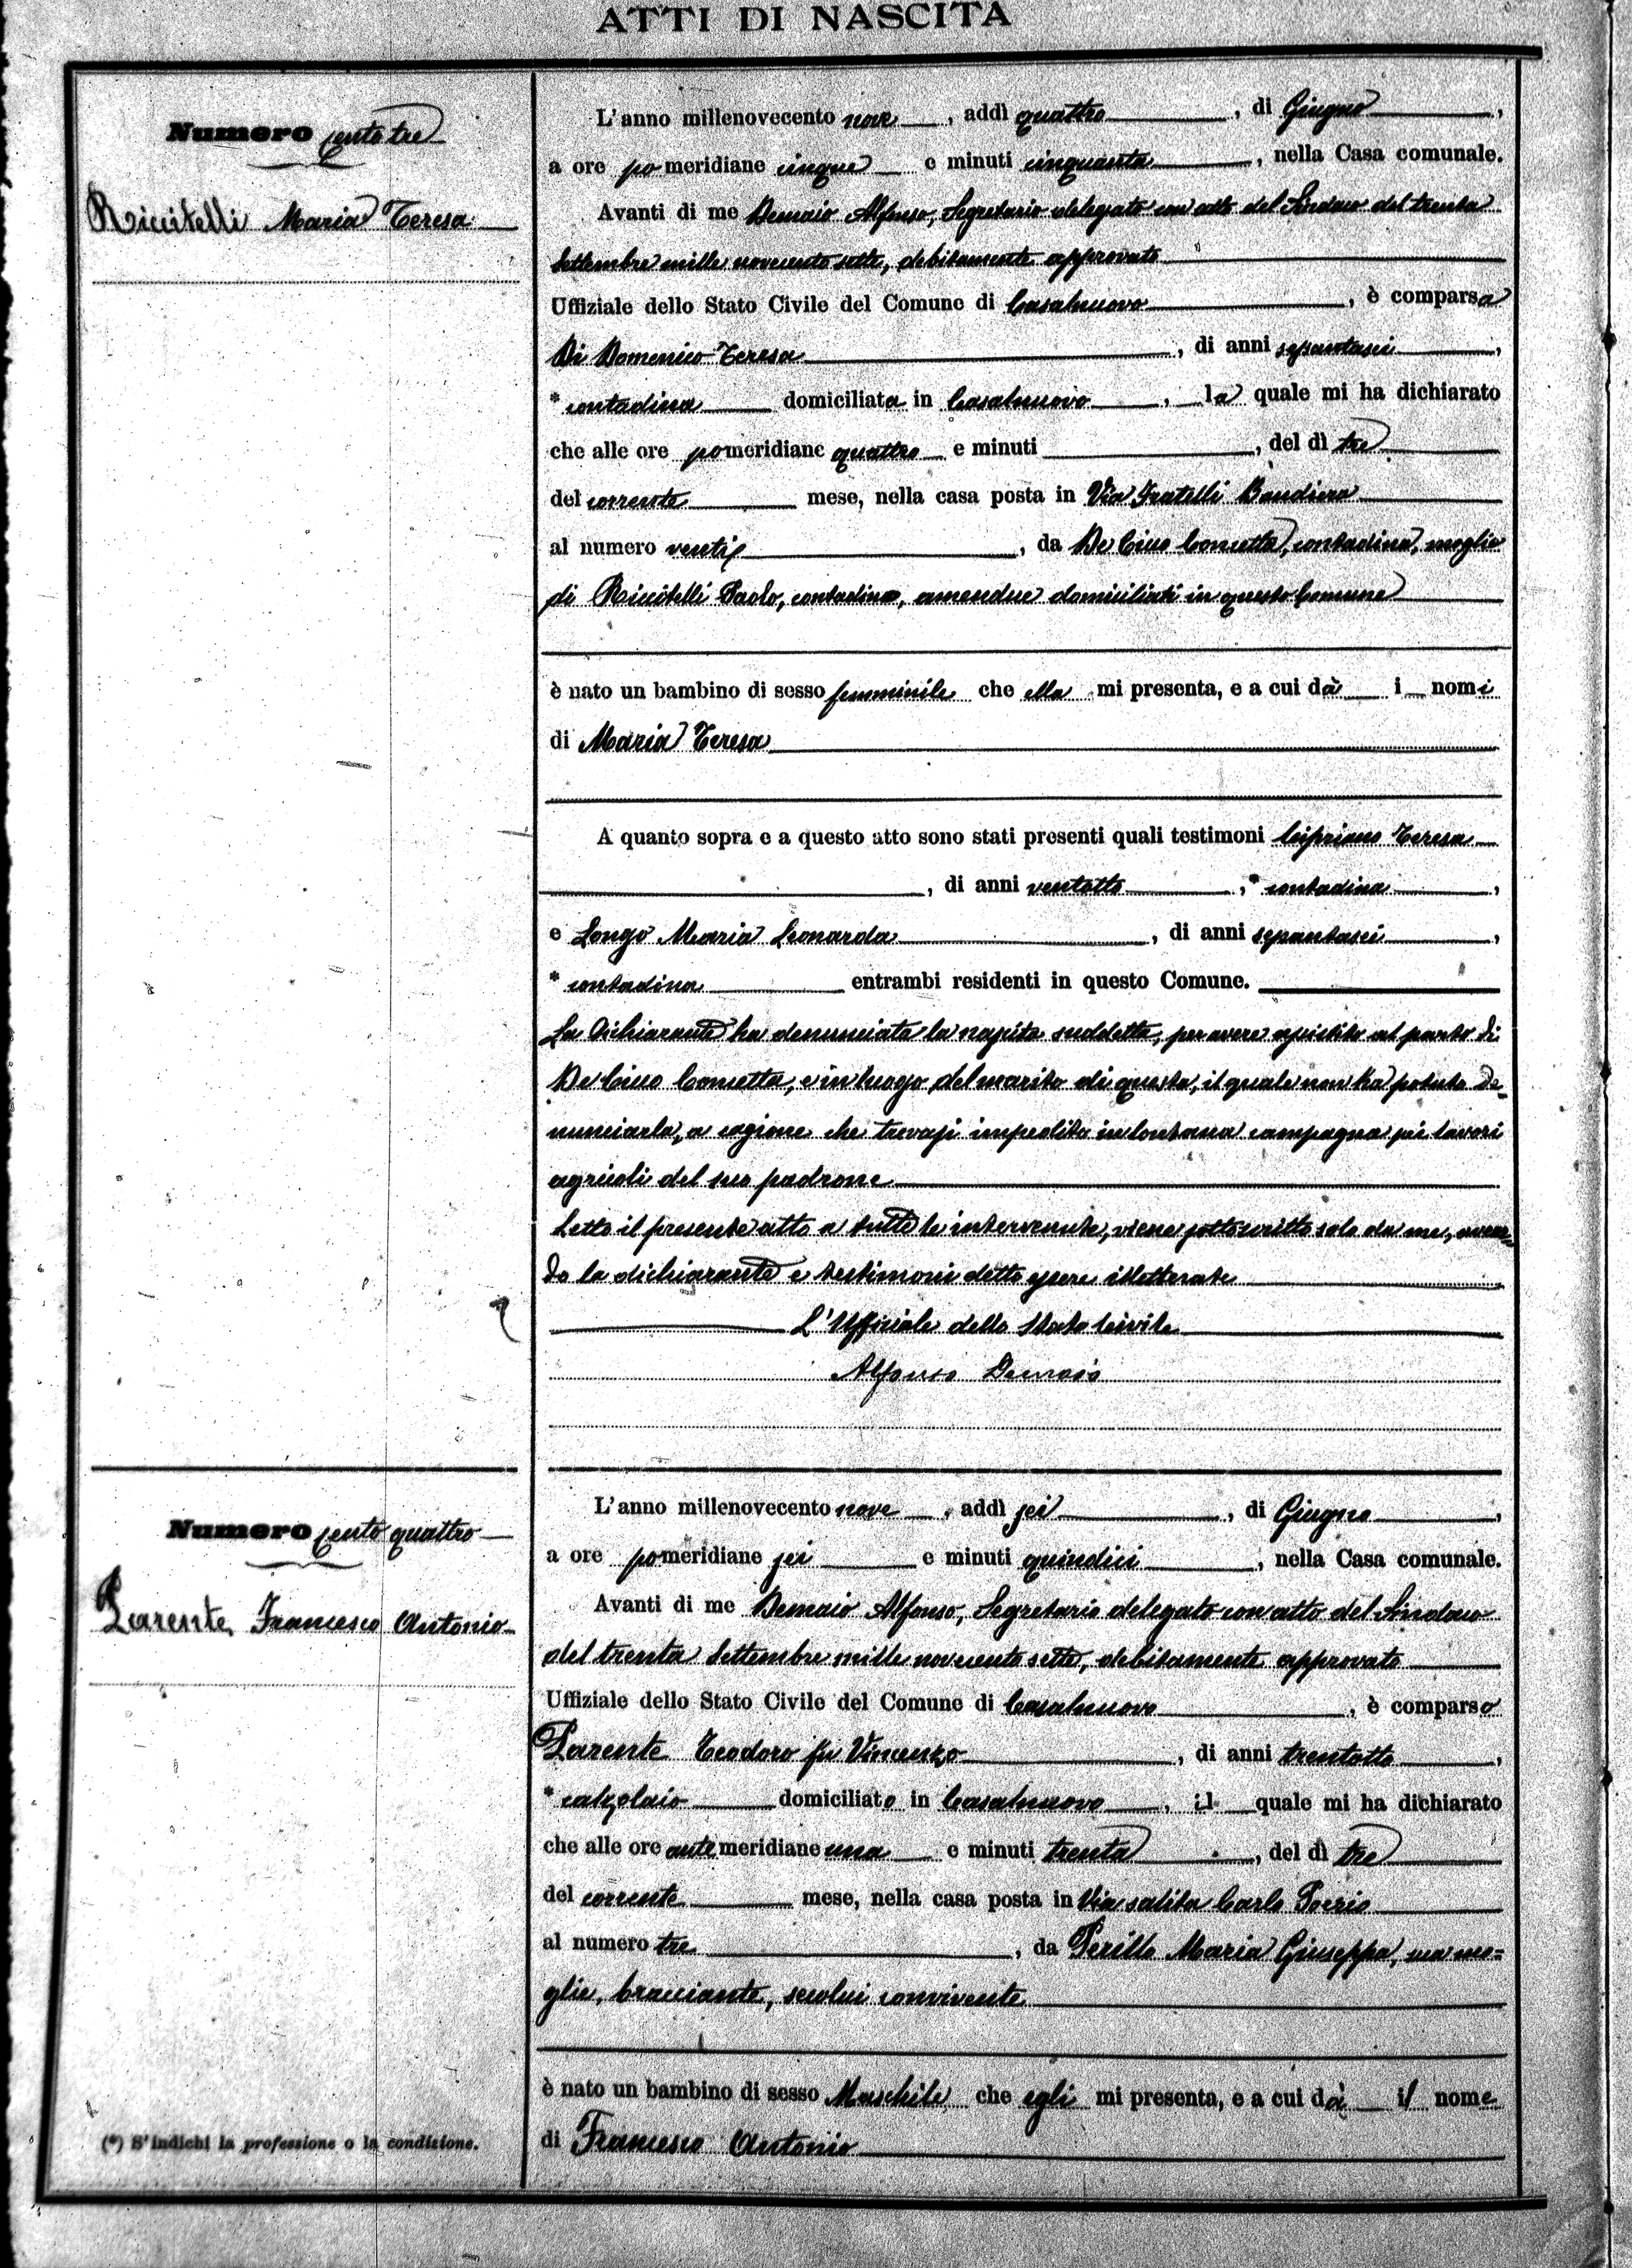 ATTI DI NASCITA
Numero cento tre
Riccitelli Maria Teresa
L'anno millenovecento nove, addì quattro, di Giugno,
a ore pomeridiane cinque e minuti cinquanta, nella Casa comunale.
Avanti di me Demaio Alfonso, Segretario delegato con atto del Sindaco del trenta
Settembre mille novecento sette, debitamente approvato
Uffiziale dello Stato Civile del Comune di Casalnuovo, è comparsa
Di Domenico Teresa, di anni sessantasei,
* contadina domiciliata in Casalnuovo, la quale mi ha dichiarato
che alle ore pomeridiane quattro e minuti, del dì tre
del corrente mese, nella casa posta in Via Fratelli Bandiera
al numero venti, da De Cicco Concetta, contadina, moglie
di Riccitelli Paolo, contadino, amendue domiciliati in questo Comune
è nato un bambino di sesso femminile che ella mi presenta, e a cui dà i nomi
di Maria Teresa
A quanto sopra e a questo atto sono stati presenti quali testimoni Cipriano Teresa
, di anni ventotto, * contadina,
e Longo Maria Leonarda, di anni sessantasei,
* contadina entrambi residenti in questo Comune.
La dichiarante ha denunciata la nascita suddetta, per avere assistito al parto di
De Cicco Concetta, e in luogo del marito di questa, il quale non ha potuto de-
nunciarla, a cagione che trovasi impedito in lontana campagna pei lavori
agricoli del suo padrone
Letto il presente atto a tutte le intervenute, viene sottoscritto solo da me, aven-
do la dichiarante e testimoni detto essere illetterate
L'Uffiziale dello Stato Civile
Alfonso Demaio
Numero cento quattro
Parente Francesco Antonio
L'anno millenovecento nove, addì sei, di Giugno,
a ore pomeridiane sei e minuti quindici, nella Casa comunale.
Avanti di me Demaio Alfonso, Segretario delegato con atto del Sindaco
del trenta Settembre mille novecento sette, debitamente approvato
Uffiziale dello Stato Civile del Comune di Casalnuovo, è comparso
Parente Teodoro fu Vincenzo, di anni trentotto,
* calzolaio domiciliato in Casalnuovo, il quale mi ha dichiarato
che alle ore antemeridiane una e minuti trenta, del dì tre
del corrente mese, nella casa posta in Via salita Carlo Poerio
al numero tre, da Perillo Maria Giuseppa, sua mo=
glie, bracciante, secolui convivente
è nato un bambino di sesso Maschile che egli mi presenta, e a cui dà il nome
di Francesco Antonio
(*) S'indichi la professione o la condizione.